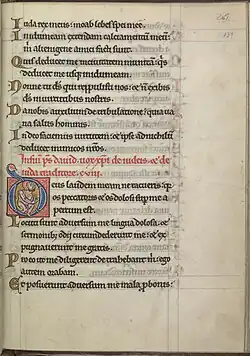 Iuda rex meus: moab lebes spei mee.
In idumeam extendam calciamentum meum:
m alienigene amici facti sunt.
Quis deducet me in ciuitatem munitam: qs
deducet me usq; in idumeam.
Nonne tu ds qui reppulisti nos: et n exibis
ds in uirtutibus nostris.
Da nobis auxilium de tribulatione: quia ua
na salus hominis.
In deo faciemus uirtutem: et ipse ad nichilu
deducet inimicos nros.
In fine ps dauid. uox xpi de iudeis et de
iuda traditore. c viii.
Deus laudem meam ne tacueris: q
os peccatoris et os dolosi sup me a
pertum est.
Locuti sunt aduersum me lingua dolosa: et
sermonib; odii circumdederunt me: et ex
pugnauerunt me gratis.
Pro eo ut me diligerent detrahebant m: ego
autem orabam.
Et posuerunt aduersum me mala p bonis: